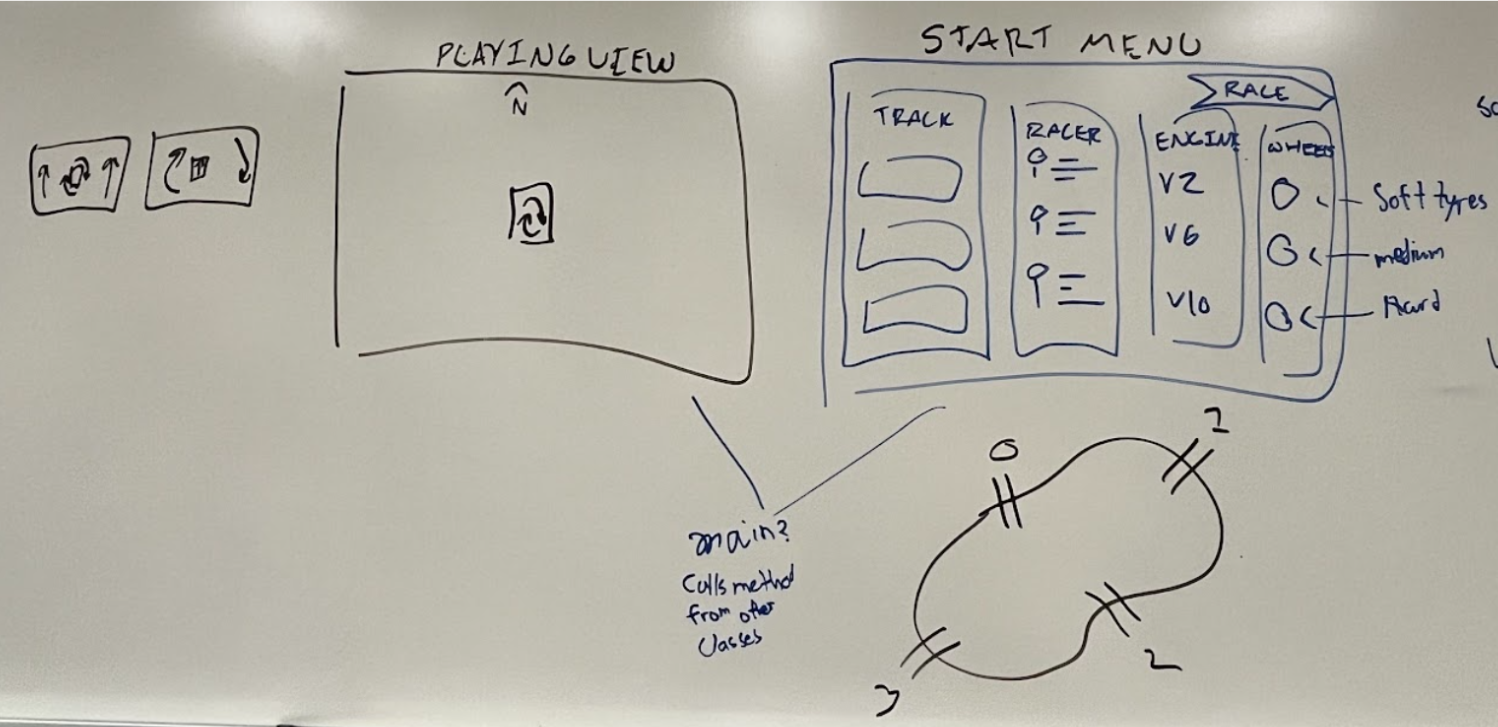 PLAYING VIEW
N
START MENU
RACE
TRACK
RACER
ENGINE
WHEELS
V2
V6
V10
Soft tyres
medium
Hard
main?
Calls method
from other
Classes
0
1
2
3